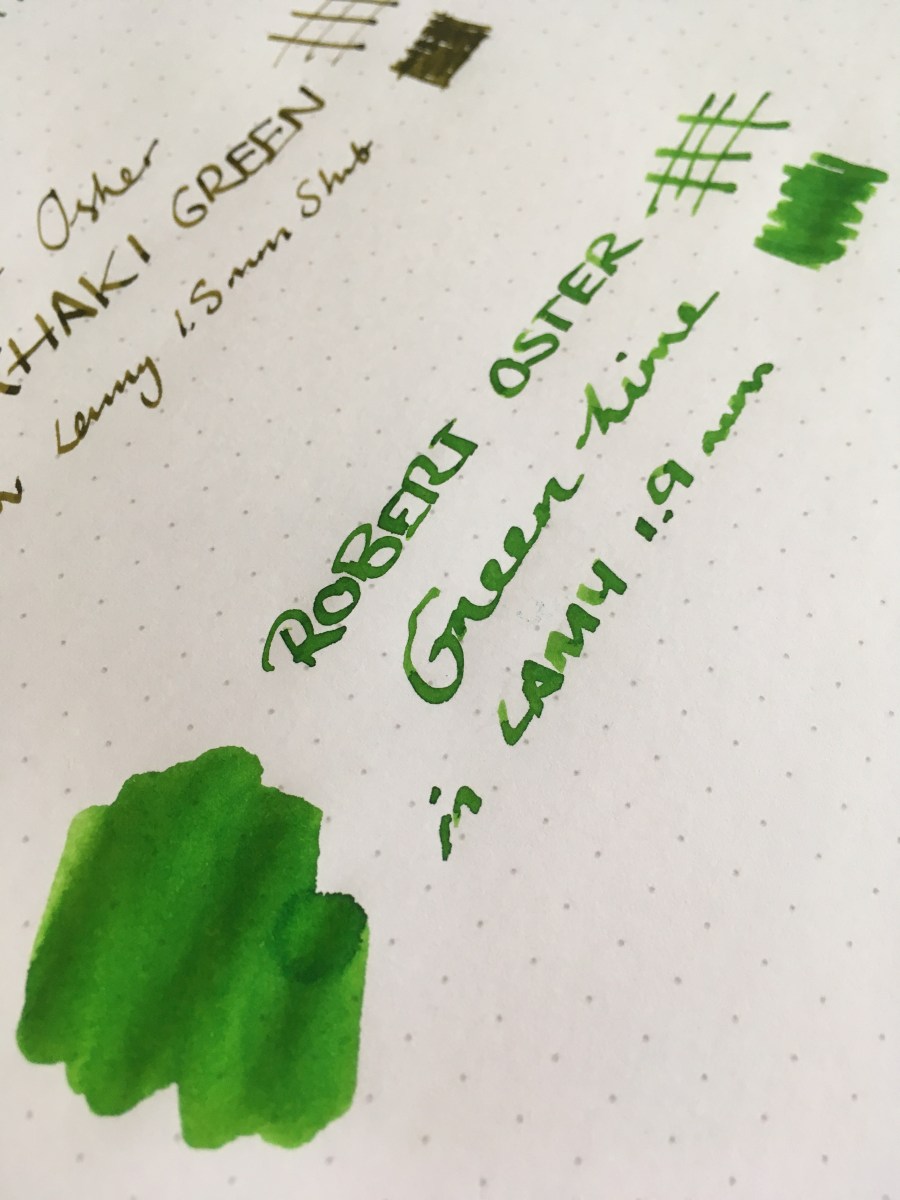 Osher
KHAKI GREEN
Lamy 1.5mm Stub
ROBERT OSTER
Green Lime
in LAMY 1.9 mm